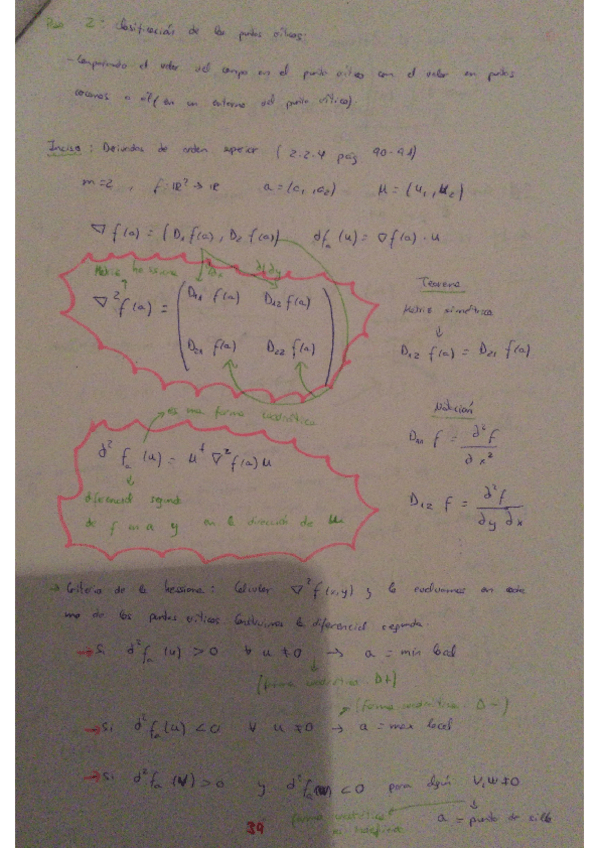 Paso 2: Clasificación de los puntos críticos:
- Comparando el valor del campo en el punto crítico con el valor en puntos
cercanos a él (en un entorno del punto crítico)
Inciso: Derivadas de orden superior (2.2.4 pág 90-91)
m=2, f: ℝ² → ℝ a = (a₁, a₂) u = (u₁, u₂)
∇f(a) = (D₁ f(a), D₂ f(a)) dfₐ(u) = ∇f(a) · u
Matriz hessiana
∇²f(a) = ( D₁₁ f(a) D₁₂ f(a)
D₂₁ f(a) D₂₂ f(a) )
Teorema
Matriz simétrica
D₁₂ f(a) = D₂₁ f(a)
→ es una forma cuadrática
d²fₐ(u) = uᵗ ∇²f(a) u
diferencial segunda
de f en a y en la dirección de u
Notación
D₁₁ f = ∂²f / ∂x²
D₁₂ f = ∂²f / ∂y ∂x
→ Criterio de la hessiana: Calcular ∇²f(x,y) y la evaluamos en cada
uno de los puntos críticos. Construimos la diferencial segunda.
→ Si d²fₐ(u) > 0 ∀ u ≠ 0 → a = min local
(forma cuadrática D+)
(forma cuadrática D-)
→ Si d²fₐ(u) < 0 ∀ u ≠ 0 → a = max local
→ Si d²fₐ(v) > 0 y d²fₐ(w) < 0 para algún v, w ≠ 0
forma cuadrática indefinida
a = punto de silla
39